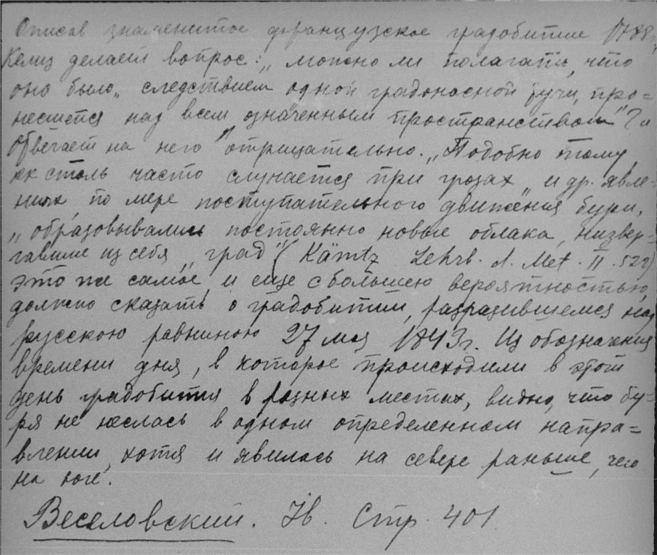 Описав знаменитое французское градобитие 1788,
Кемц делает вопрос: „можно ли полагать, что
оно было„ следствием одной градоносной тучи, про=
несшейся над всем означенным пространством"? и
отвечает на него отрицательно. „Подобно тому,
как столь часто случается при грозах„ и др. явле=
ниях по мере поступательного движения бури,
„образовывались постоянно новые облака, низвер=
гавшие из себя„ град" (Kämtz Lehrb. d. Met. II. 529)
это же самое, и еще с большею вероятностью,
должно сказать о градобитии, разразившемся над
русскою равниною 27 мая 1843 г. Из обозначения
времени дня, в которое происходили в этот
день градобития в разных местах, видно, что бу=
ря не неслась в одном определенном напра=
влении, хотя и явилась на севере раньше, чем
на юге.
Веселовский. Стр. 401.